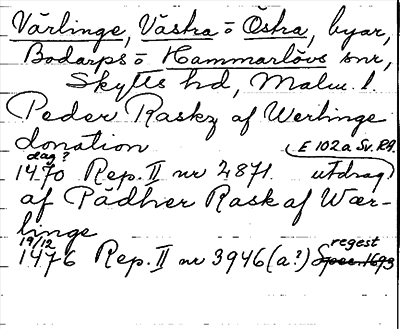 Värlinge, Västra o Östra, byar,
Bodarps o Hammarlövs snr,
Skytts hd, Malm. l.
Peder Raskz af Werlinge
donation (E 102 a Sv. RA.
dag?
1470 Rep. II nr 2871. utdrag)
af Pädher Rask af Wær-
linge
19/12 regest
1476 Rep. II nr 3946 (a?) Spec. 1693